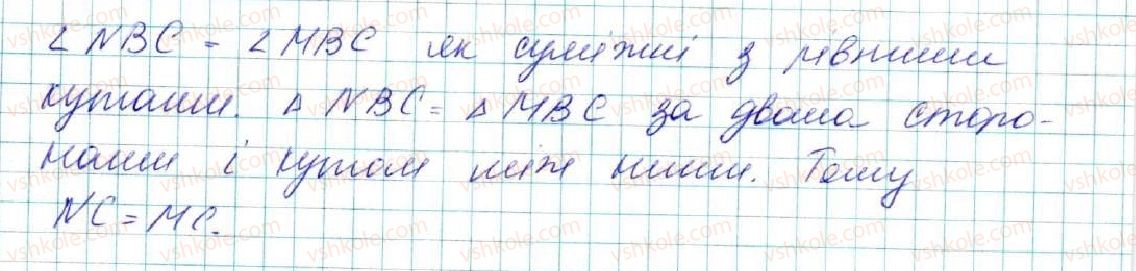 ∠NBC = ∠MBC як суміжні з рівними
кутами. △NBC = △MBC за двома сторо-
нами і кутом між ними. Тому
NC = MC.